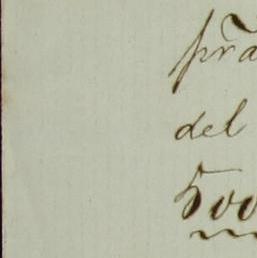 pra
del
500